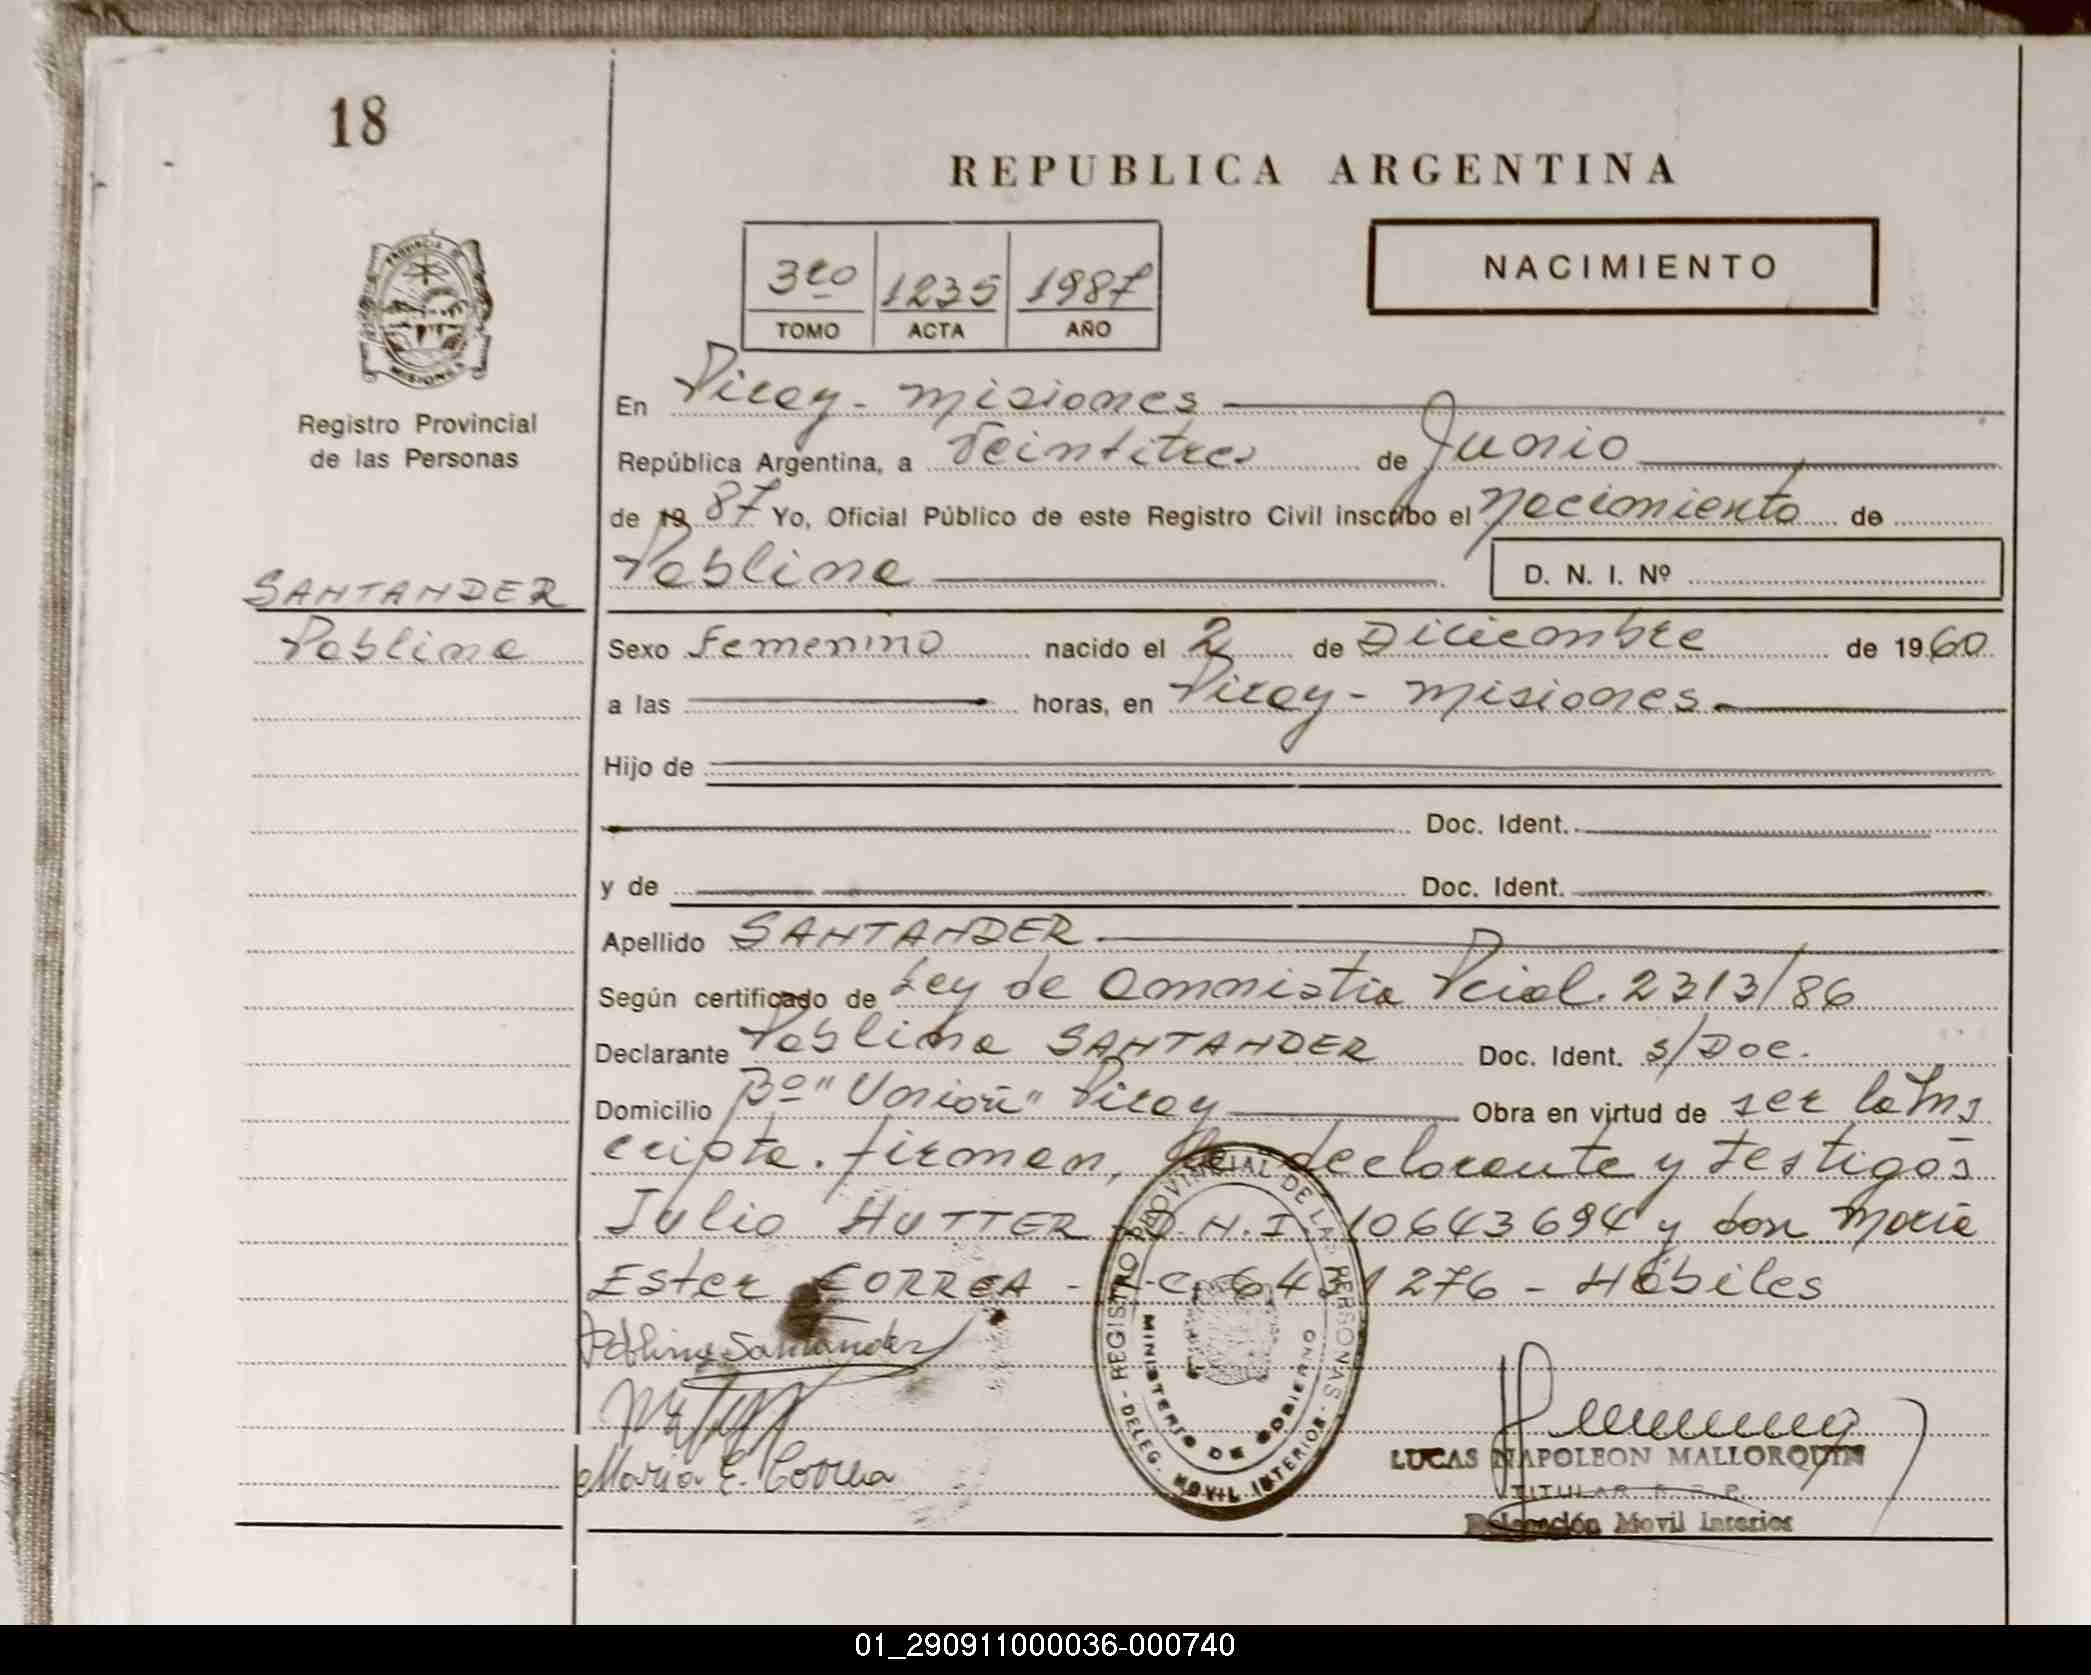 18
REPUBLICA ARGENTINA
NACIMIENTO
3ro 1235 1987
TOMO ACTA AÑO
PROVINCIA DE
MISIONES
Registro Provincial
de las Personas
En Piray - Misiones
República Argentina, a Veintitres de Junio
de 19 87 Yo, Oficial Público de este Registro Civil inscribo el Nacimiento de
Pablina
D. N. I. Nº
SANTANDER
Pablina
Sexo Femenino nacido el 2 de Diciembre de 1960
a las horas, en Piray - Misiones
Hijo de
Doc. Ident.
y de Doc. Ident.
Apellido SANTANDER
Según certificado de Ley de Amnistia Pcial. 2313/86
Declarante Pablina SANTANDER Doc. Ident. s/Doc.
Domicilio Bº "Unión" Piray Obra en virtud de ser la Ins
cripta. Firman, la declarante y testigos
Julio HUTTER D.N.I. 10643694 y don Maria
Ester CORREA - L-C. 6431276 - Hábiles
Pablina Santander
Maria E. Correa
REGISTRO PROVINCIAL DE LAS PERSONAS
MINISTERIO DE GOBIERNO
DELEG. MOVIL INTERIOR
LUCAS NAPOLEON MALLORQUIN
TITULAR R. P. P.
Delegación Movil Interior
01_290911000036-000740